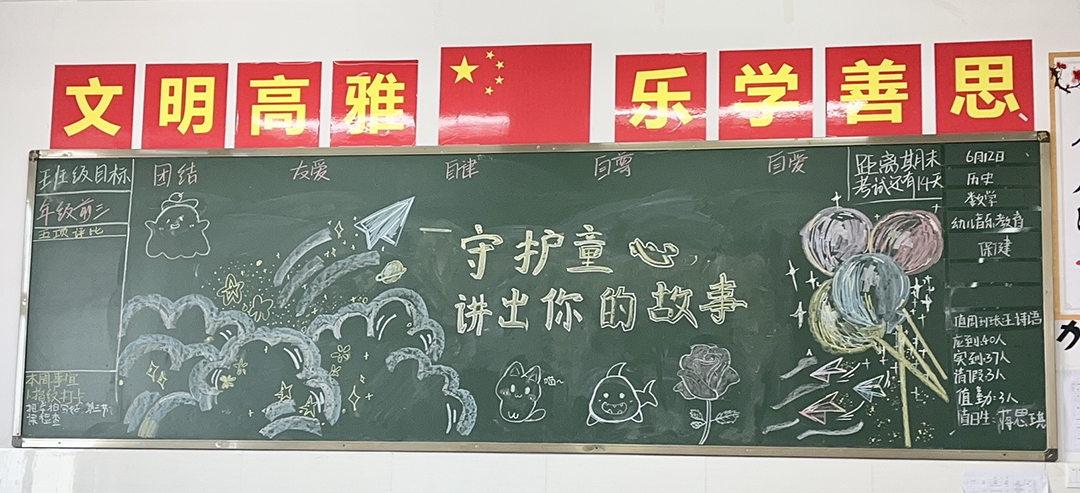 文明高雅
乐学善思
班级目标
年级前三
五项评比
本周事宜
1.指纹打卡
团结 友爱 自律 自尊 自爱
守护童心，
讲出你的故事
喵~
距离期末
考试还有14天
6月12日
历史
数学
幼儿音乐教育
保健
应到:40人
实到:37人
请假:3人
值勤:3人
值日生: